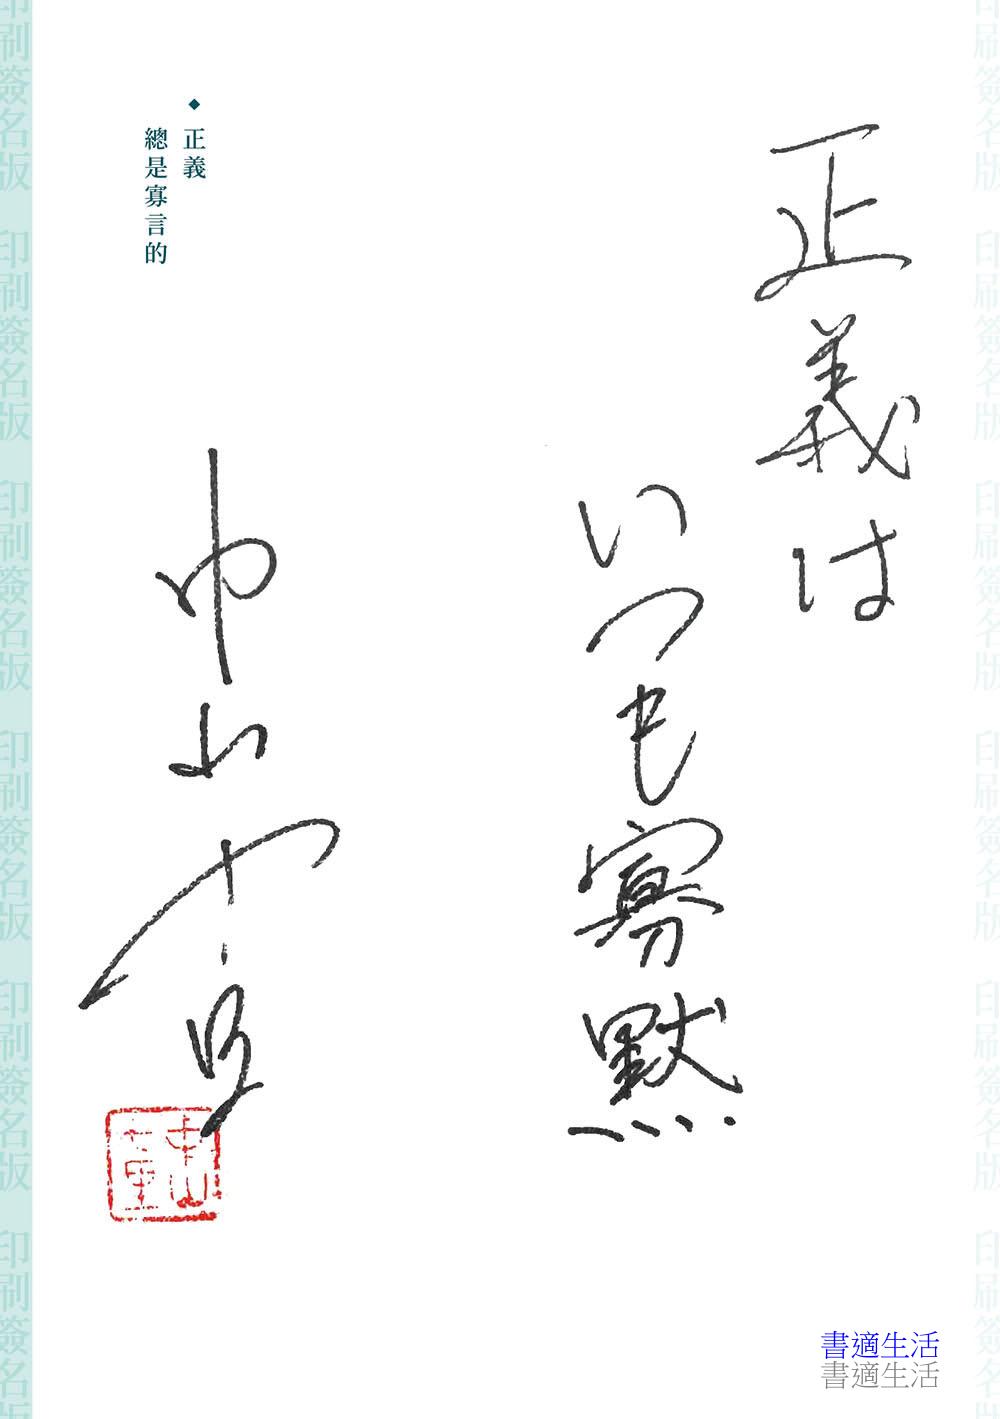 正義は
いつも寡黙
中山七里
◆ 正義
總是寡言的
印刷簽名版 印刷簽名版 印刷簽名版 印刷簽名版 印刷簽名版 印刷簽名版
印刷簽名版 印刷簽名版 印刷簽名版 印刷簽名版 印刷簽名版 印刷簽名版
書適生活
書適生活